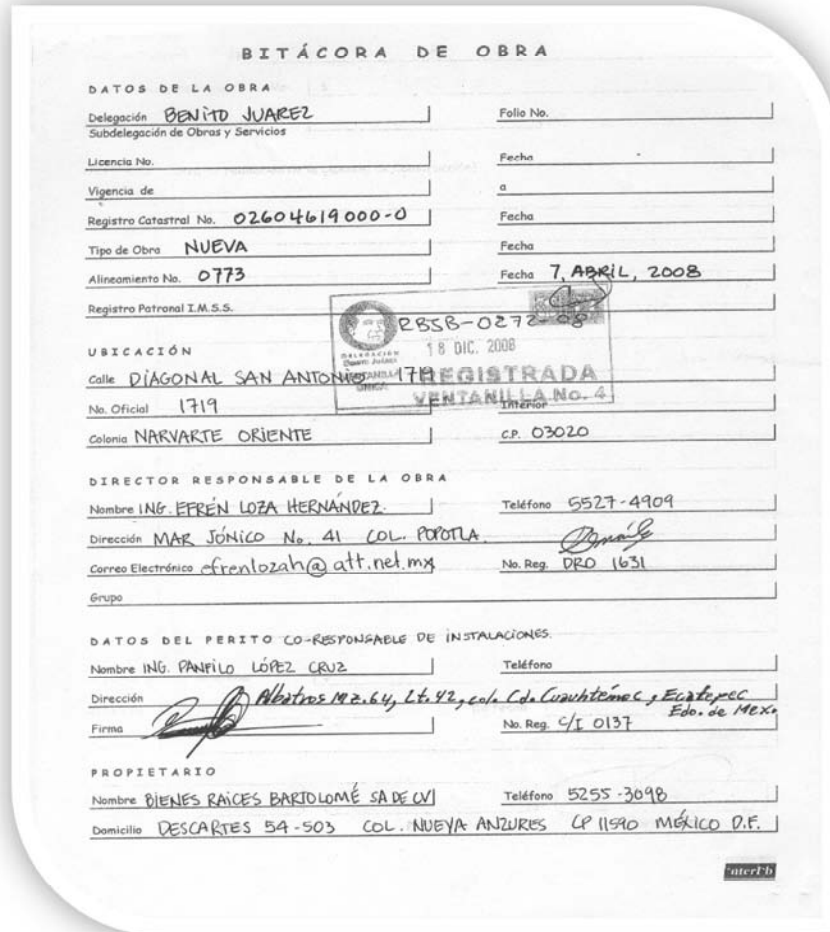 BITÁCORA DE OBRA
DATOS DE LA OBRA
Delegación BENITO JUAREZ Folio No.
Subdelegación de Obras y Servicios
Licencia No. Fecha
Vigencia de a
Registro Catastral No. 02604619000-0 Fecha
Tipo de Obra NUEVA Fecha
Alineamiento No. 0773 Fecha 7, ABRIL, 2008
Registro Patronal I.M.S.S.
RBJB-0272-08
DELEGACIÓN
Benito Juárez
18 DIC. 2008
VENTANILLA
ÚNICA
REGISTRADA
VENTANILLA No. 4
UBICACIÓN
Calle DIAGONAL SAN ANTONIO 1719
No. Oficial 1719 Interior
Colonia NARVARTE ORIENTE C.P. 03020
DIRECTOR RESPONSABLE DE LA OBRA
Nombre ING. EFRÉN LOZA HERNÁNDEZ. Teléfono 5527-4909
Dirección MAR JÓNICO No. 41 COL. POPOTLA.
Correo Electrónico efrenlozah@att.net.mx No. Reg. DRO 1631
Grupo
DATOS DEL PERITO CO-RESPONSABLE DE INSTALACIONES.
Nombre ING. PANFILO LÓPEZ CRUZ Teléfono
Dirección Albatros Mz.64, Lt.42, col. Cd. Cuauhtémoc, Ecatepec
Edo. de Mex.
Firma No. Reg. C/I 0137
PROPIETARIO
Nombre BIENES RAICES BARTOLOMÉ SA DE CV Teléfono 5255-3098
Domicilio DESCARTES 54-503 COL. NUEVA ANZURES CP 11590 MÉXICO D.F.